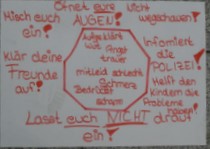 Öffnet eure nicht
AUGEN!
wegschauen!
Misch euch
ein!
Informiert
die
POLIZEI!
Klär deine
Freunde
auf!
Helft den
Kindern die
Probleme
haben!
Wut Angst
trauer
mitleid schlecht
Schmerz
Bedrückt
scham
Lasst euch NICHT drauf
ein!